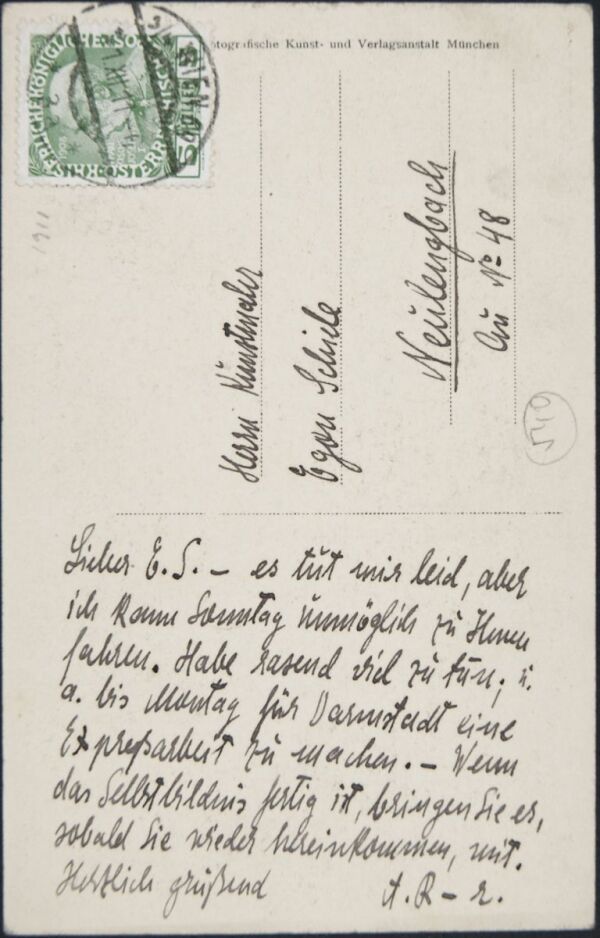 Photografische Kunst- und Verlagsanstalt München
KAISERLICHEKÖNIGLICHE
ÖSTERR
WIEN
1911
Herrn Kunstmaler
Egon Schiele
Neulengbach
Au No 48
549
Lieber E. S. – es tut mir leid, aber
ich kann Sonntag unmöglich zu Ihnen
fahren. Habe rasend viel zu tun; u.
a. bis Montag für Darmstadt eine
Expreßarbeit zu machen. – Wenn
das Selbstbildnis fertig ist, bringen Sie es,
sobald Sie wieder hereinkommen, mit.
Herzlich grüßend
A. R – r.